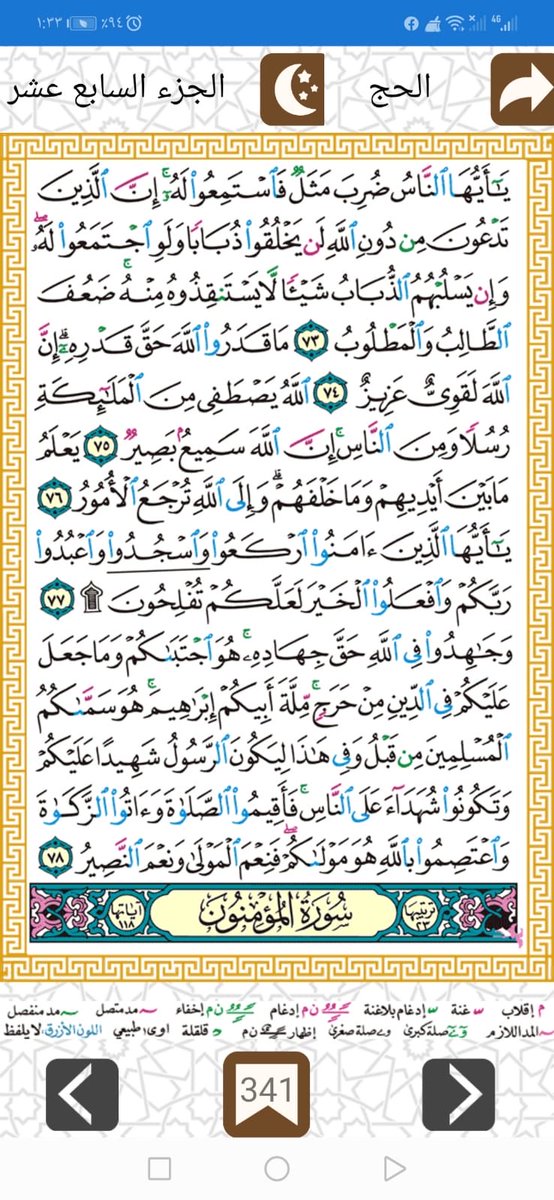 ١:٣٣ ٪٩٤ 4G
الحج الجزء السابع عشر
يَـٰٓأَيُّهَا ٱلنَّاسُ ضُرِبَ مَثَلٌ فَٱسْتَمِعُوا۟ لَهُۥٓ ۚ إِنَّ ٱلَّذِينَ
تَدْعُونَ مِن دُونِ ٱللَّهِ لَن يَخْلُقُوا۟ ذُبَابًا وَلَوِ ٱجْتَمَعُوا۟ لَهُۥ ۖ
وَإِن يَسْلُبْهُمُ ٱلذُّبَابُ شَيْـًٔا لَّا يَسْتَنقِذُوهُ مِنْهُ ۚ ضَعُفَ
ٱلطَّالِبُ وَٱلْمَطْلُوبُ ٧٣ مَا قَدَرُوا۟ ٱللَّهَ حَقَّ قَدْرِهِۦٓ ۗ إِنَّ
ٱللَّهَ لَقَوِىٌّ عَزِيزٌ ٧٤ ٱللَّهُ يَصْطَفِى مِنَ ٱلْمَلَـٰٓئِكَةِ
رُسُلًا وَمِنَ ٱلنَّاسِ ۚ إِنَّ ٱللَّهَ سَمِيعٌۢ بَصِيرٌ ٧٥ يَعْلَمُ
مَا بَيْنَ أَيْدِيهِمْ وَمَا خَلْفَهُمْ ۗ وَإِلَى ٱللَّهِ تُرْجَعُ ٱلْأُمُورُ ٧٦
يَـٰٓأَيُّهَا ٱلَّذِينَ ءَامَنُوا۟ ٱرْكَعُوا۟ وَٱسْجُدُوا۟ وَٱعْبُدُوا۟
رَبَّكُمْ وَٱفْعَلُوا۟ ٱلْخَيْرَ لَعَلَّكُمْ تُفْلِحُونَ ۩ ٧٧
وَجَـٰهِدُوا۟ فِى ٱللَّهِ حَقَّ جِهَادِهِۦ ۚ هُوَ ٱجْتَبَىٰكُمْ وَمَا جَعَلَ
عَلَيْكُمْ فِى ٱلدِّينِ مِنْ حَرَجٍ ۚ مِّلَّةَ أَبِيكُمْ إِبْرَٰهِيمَ ۚ هُوَ سَمَّىٰكُمُ
ٱلْمُسْلِمِينَ مِن قَبْلُ وَفِى هَـٰذَا لِيَكُونَ ٱلرَّسُولُ شَهِيدًا عَلَيْكُمْ
وَتَكُونُوا۟ شُهَدَآءَ عَلَى ٱلنَّاسِ ۚ فَأَقِيمُوا۟ ٱلصَّلَوٰةَ وَءَاتُوا۟ ٱلزَّكَوٰةَ
وَٱعْتَصِمُوا۟ بِٱللَّهِ هُوَ مَوْلَىٰكُمْ ۖ فَنِعْمَ ٱلْمَوْلَىٰ وَنِعْمَ ٱلنَّصِيرُ ٧٨
ترتيبها ٢٣ سُورَةُ المُؤْمِنُونَ آياتها ١١٨
م إقلاب غنة إدغام بلاغنة ن م إدغام ن م إخفاء مد متصل مد منفصل
المد اللازم صلة كبرى صلة صغرى إظهار ن م قلقلة اوى طبيعي اللون الأزرق لا يلفظ
341